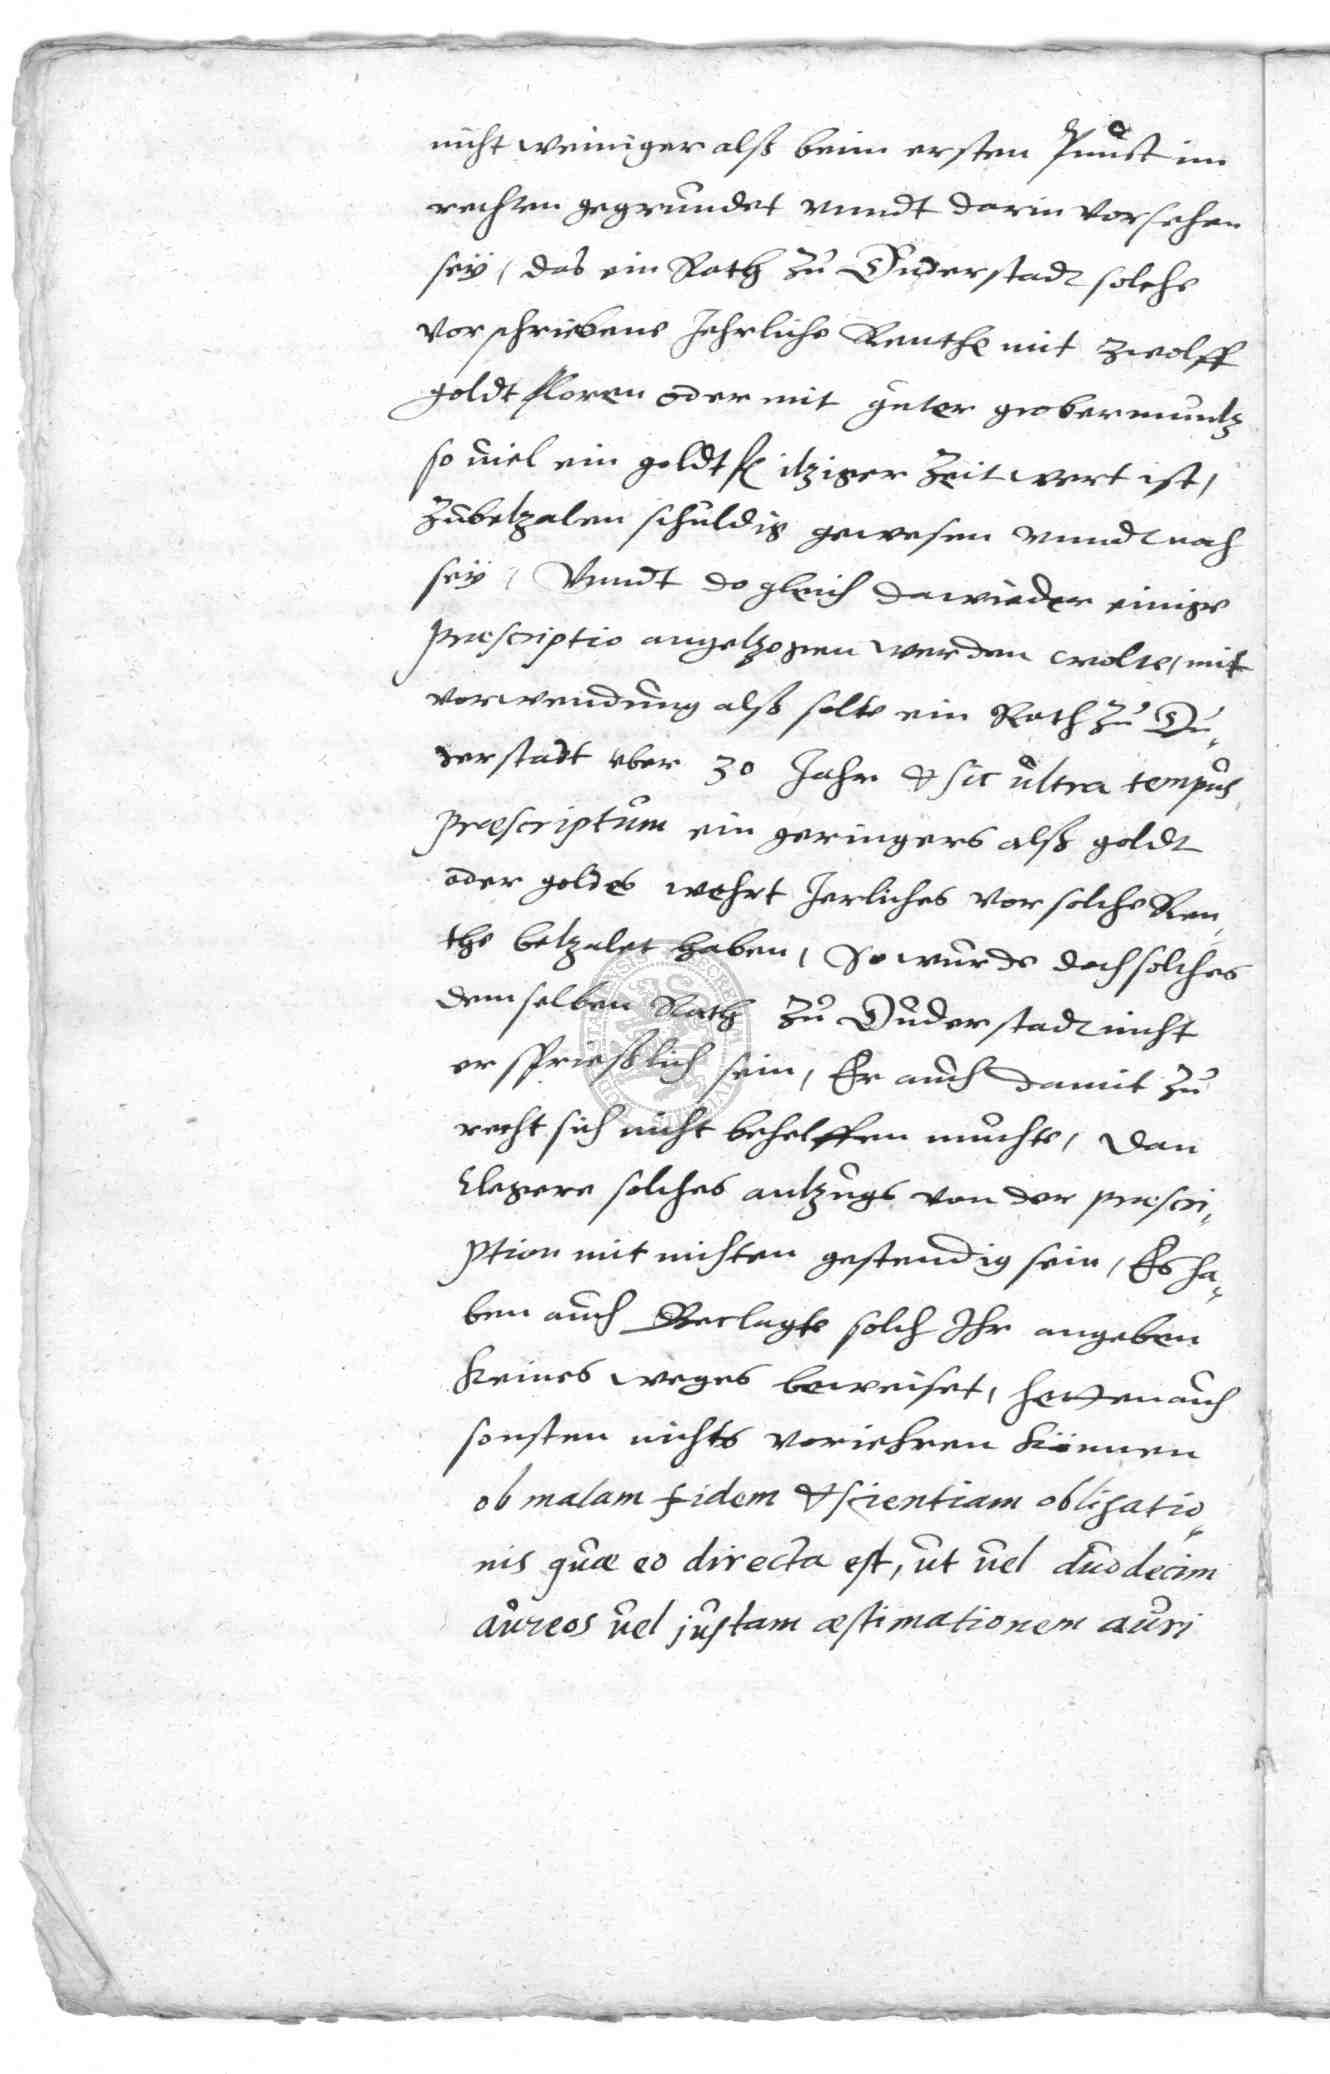 nicht weiniger alß beim ersten Punct im
rechten gegrundet vnndt darin vorsehen
seÿ, das ein Rath zu Duderstadt solche
vorschriebene Jehrliche Renthe mit zwolff
goldt floren oder mit guter grober muntz
so uiel ein goldt fl itziger Zeit wert ist,
zubetzalen schuldig gewesen vnndt noch
seÿ, Vnndt do gleich dawieder einige
præscriptio angetzogen werden wolte, mit
vorwendung alß solte ein Rath zu Du„
derstadt vber 30 Jahr & sic ultra tempus
præscriptum ein geringers alß goldt
oder goldes wehrt Jerliches vor solche Ren„
the betzalet haben, So wurde doch solches
demselben Rath zu Duderstadt nicht
ersprießlich sein, Er auch damit zu
recht sich nicht behelffen muchte, dan
Clegere solches antzugs von der præscri„
ption mit nichten gestendig sein, Es ha„
ben auch Beclagte solch Ihr angeben
keines weges beweiset, hetten auch
sonsten nichts vorjehren können
ob malam fidem & scientiam obligatio„
nis quæ eo directa est, ut uel duodecim
aureos uel justam æstimationem auri